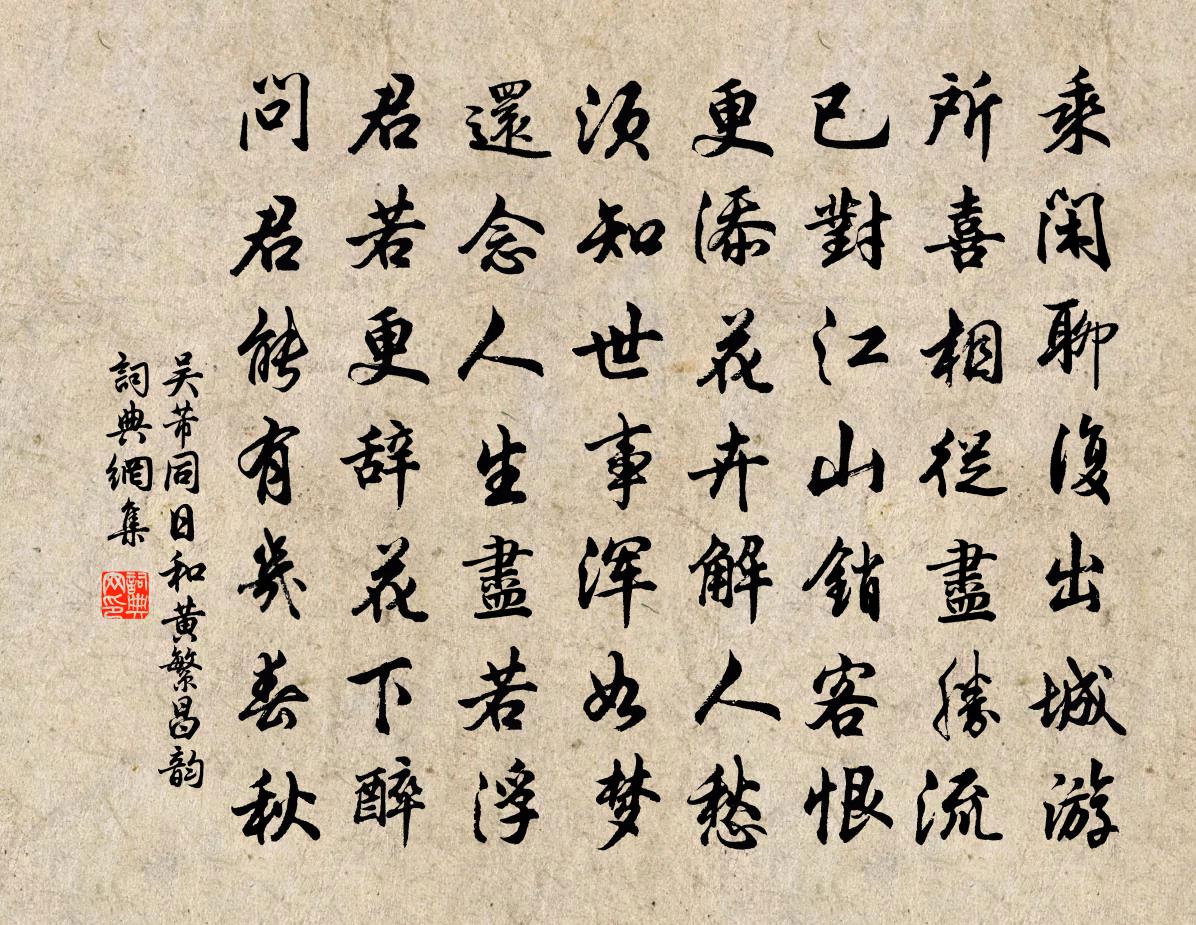 乘閑聊復出城游
所喜相從盡勝流
已對江山銷客恨
更添花卉解人愁
須知世事渾如梦
還念人生盡若浮
君若更辞花下醉
問君能有幾春秋
吴芾同日和黄繁昌韵
詞典網集
詞典
网印